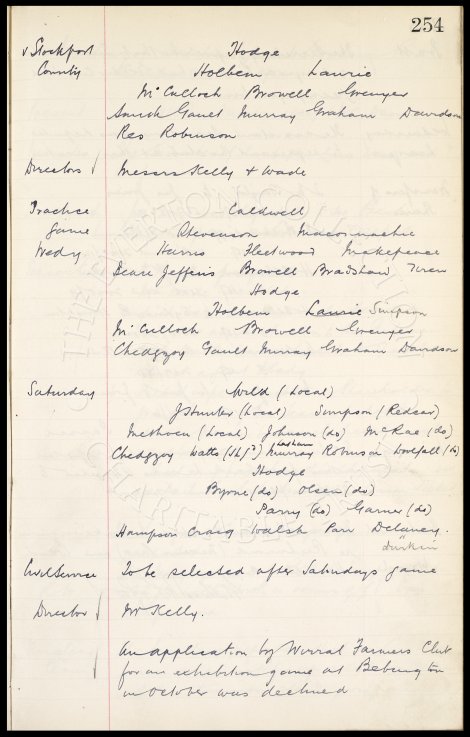 254
v Stockport Hodge
County Holbem Laurie
McCulloch Browell Grenyer
Smith Gault Murray Graham Davidson
Res Robinson
Directors Messrs Kelly & Wade
Practice Caldwell
Game Stevenson Maconnachie
Wedy Harris Fleetwood Makepeace
Jeffins Browell Bradshaw
Hodge
Holbem Laurie Simpson
McCulloch Browell Grenyer
Chedgzoy Gault Murray Graham Davidson
Saturday Wild (Local)
J Hunter (Local) Simpson (Redcar)
Methven (Local) Johnson (do) McRae (do)
Lasham
Chedgzoy Watts Murray Robinson Woolfall (do)
Hodge
Byrne (do) Olsen (do)
Parry (do) Garner (do)
Hampson Craig Walsh Parr Delaney.
" Durkin
Civil Service To be selected after Saturdays game
Director Mr Kelly.
An application by Wirral Farmers Club
for an exhibition game at Bebington
in October was declined